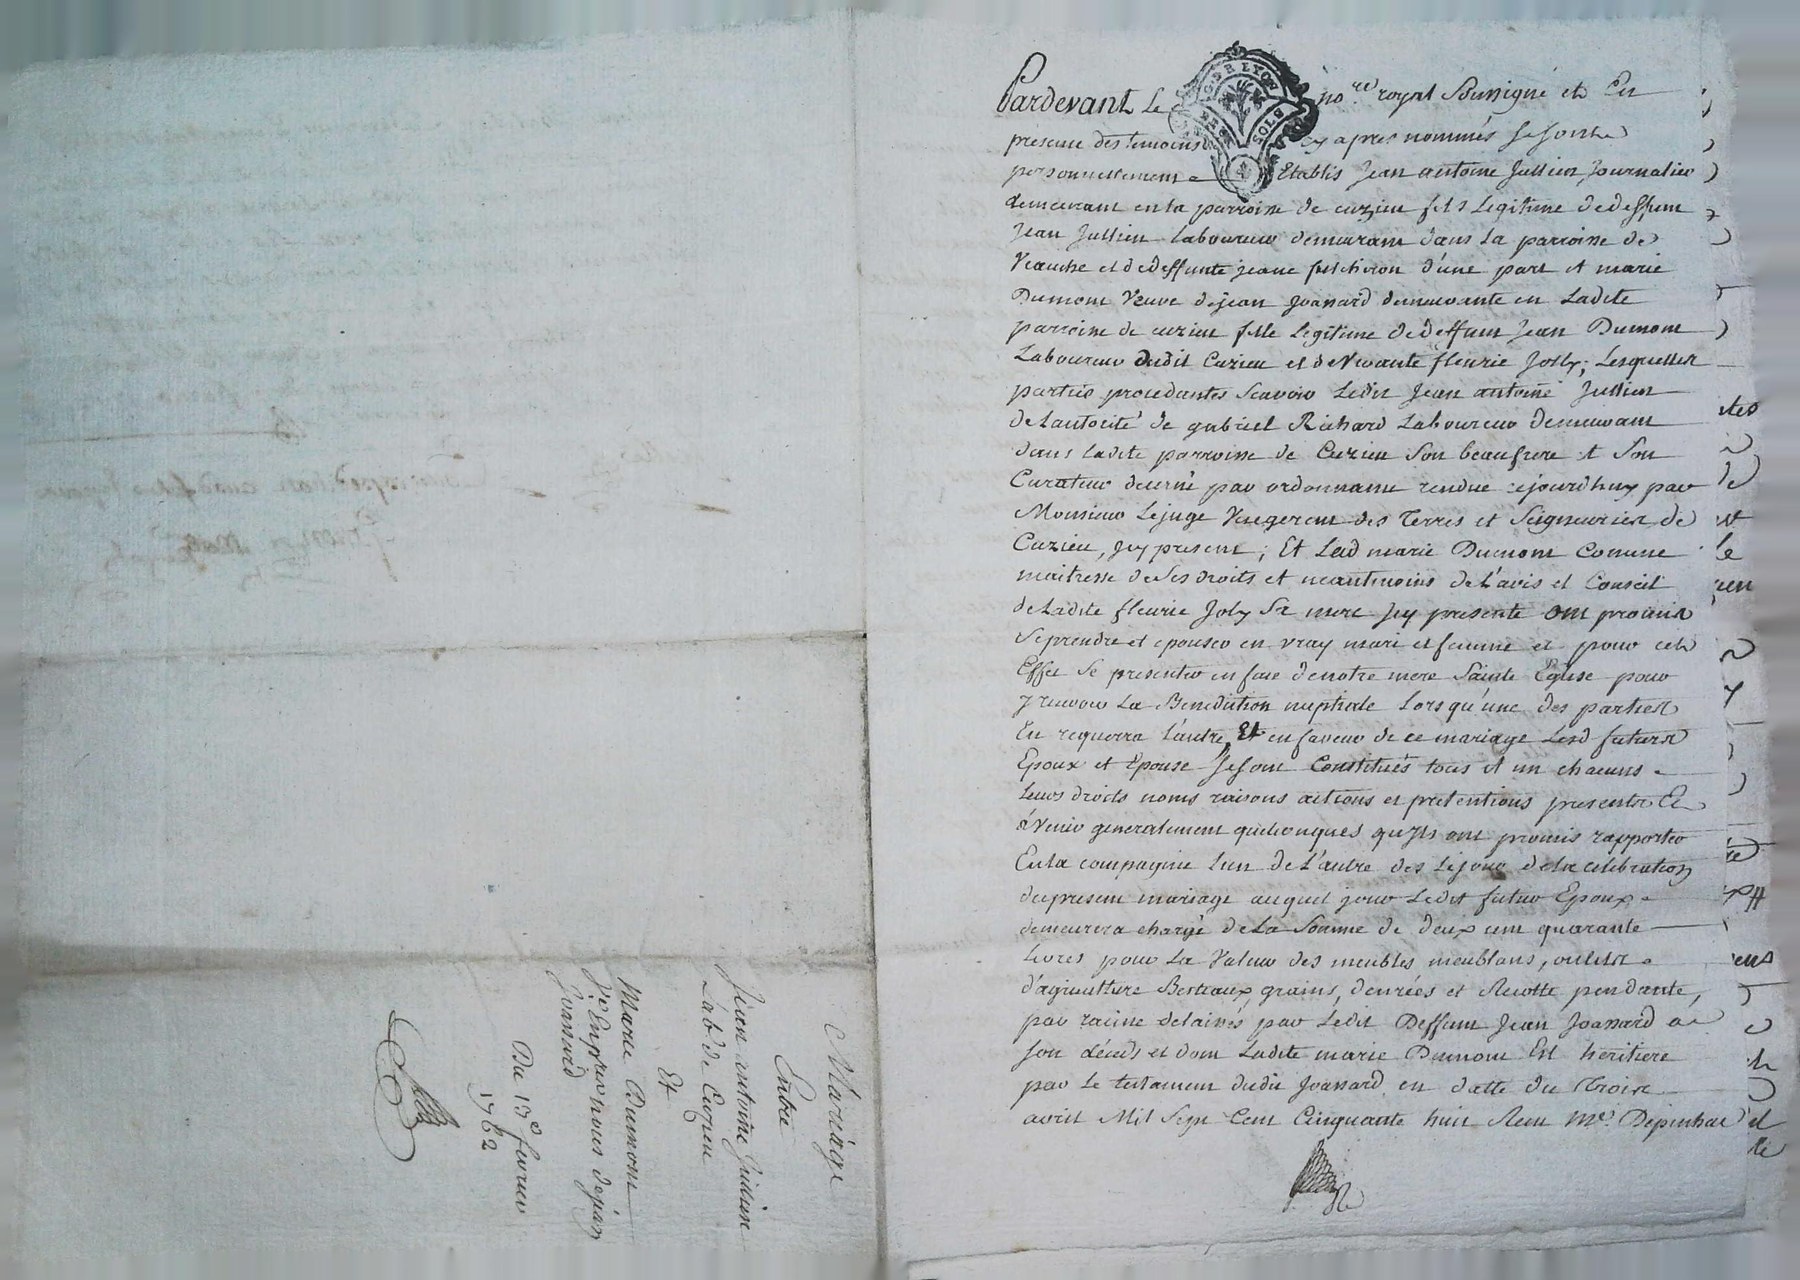 Mariage
Entre
Jean antoine Jullien
Lab.r de Cuzieu
Et
Marie Dumont
V.e En p.res noces de jean
Joassard
Du 13e fevrier
1762
GNR LYON
SOLS
Pardevant Le no.re royal Soussigné et En
presence des temoins cy apres nommés se sont
personnellement Etablis Jean antoine Jullien Journalier
demeurant en la parroisse de cuzieu fils Legitime de deffunt
Jean Jullien Laboureur demeurant dans la parroisse de
Veauche et de deffunte jeane fulchiron d'une part et marie
Dumont Veuve de jean Joassard demeurante en Ladite
parroisse de cuzieu fille Legitime de deffunt Jean Dumont
Laboureur dudit Cuzieu et de Vivante fleurie Joly; Lesquelles
parties procedantes scavoir Ledit Jean antoine Jullien
de Lautorité de gabriel Richard Laboureur demeurant
dans ladite parroisse de Cuzieu Son beaufrere et Son
Curateur decerné par ordonnance rendue cejourdhuy par
Monsieur Lejuge Vicegerent des Terres et Seigneuries de
Cuzieu, Jcy present; Et Lad marie Dumont Comme
maitresse de ses droits et neantmoins de L'avis et Conseil
de Ladite fleurie Joly Sa mere Jcy presente ont promis
se prendre et epouser en vray mari et femme et pour cet
Effet se presenter en face de notre mere Sainte Eglise pour
y recevoir La Benediction nuptiale Lorsqu'une des parties
En requerra L'autre, Et en faveur de ce mariage Lesd futurs
Epoux et Epouse se sont Constitués tous et un chacuns
Leurs droits noms raisons actions et pretentions presents Et
àVenir generalement quelconques qu'Jls ont promis rapporter
En la compagnie Lun de L'autre des Lejour de la celebration
du present mariage auquel jour Ledit futur Epoux
demeurera chargé de La Somme de deux cent quarante
Livres pour La Valeur des meubles meublans, outils
d'agriculture Bestiaux, grains, denrées et Recolte pendante,
par racine delaissés par Ledit Deffunt Jean Joassard a
son décéds et dont Ladite marie Dumont Est heritiere
par Le testament dudit Joassard en datte du Troise
avril Mil Sept Cent Cinquante huit Recu Me. Depinhac